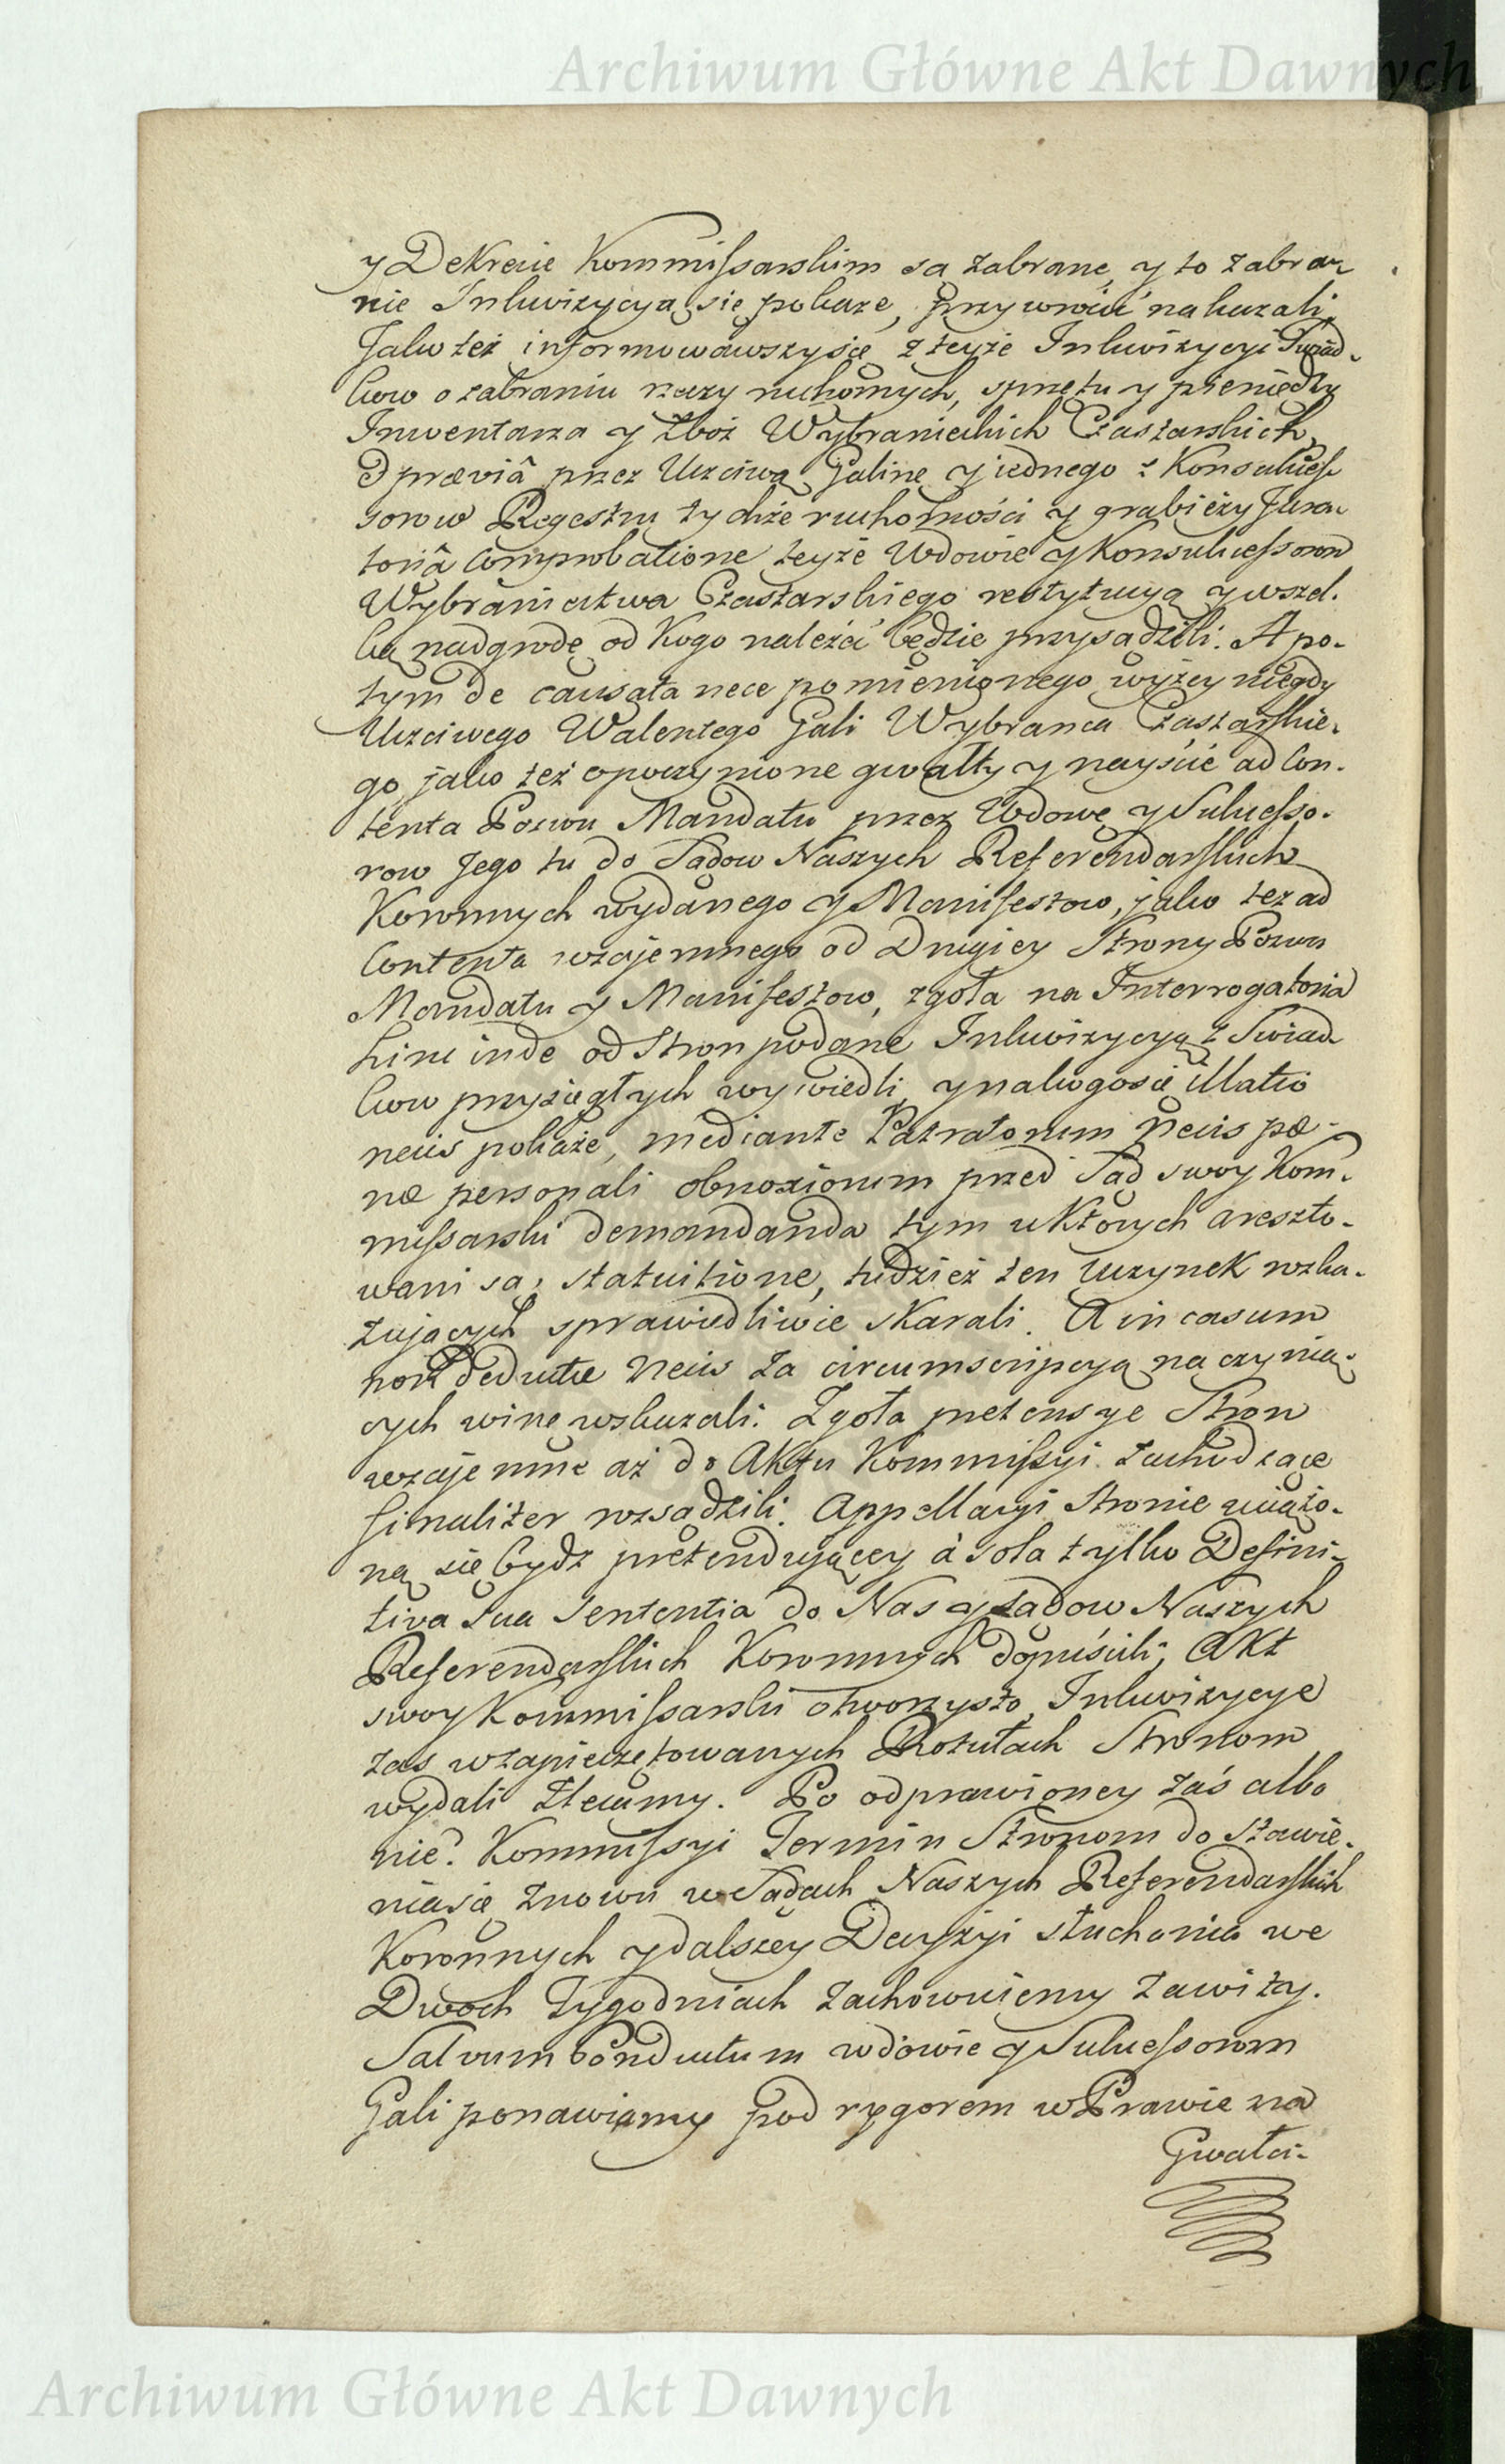 Archiwum Główne Akt Dawnych
y Dekrecie Kommissarskim są zabrane, y to zabra-
nie Inkwizycyą się pokaże, przywrócić nakazali,
Jako też informowawszy się z teyże Inkwizycyi Swiad-
kow o zabraniu rzeczy ruchomych, sprzętu y pieniędzy
Inwentarza y Zboż Wybranieckich Czastarskich,
prævia przez Uczciwą Galinę y iednego z Konsukcess-
sorow Regestru tychże ruchomości y grabieży Jura-
toriâ comprobatione teyże Wdowie y Konsukcessorom
Wybraniectwa Czastarskiego restytucyą y wszel-
ką nadgrodę od Kogo należeć będzie przysądzili. A po-
tym de causata nece pomienionego wyżey niegdy
Uczciwego Walentego Gali Wybranca Czastarskie-
go, jako też o poczynione gwałty y nayście ad Con-
tenta Pozwu Mandatu przez Wdowę y Sukcesso-
row Jego tu do Sądow Naszych Referendarskich
Koronnych wydanego y Manifestow, jako też ad
Contenta wzajemnego od Drugiey Strony Pozwu
Mandatu y Manifestow, zgoła na Interrogatoria
hinc inde od Stron podane Inkwizycyą z Swiad-
kow przysięgłych wywiedli, y na kogo się illatio
necis pokaże, mediante Patratorum necis pæ-
næ personali obnoxiorum przed Sąd swoy Kom-
missarski demandanda tym u Których areszto-
wani są, statuitione, tudzież ten Uczynek rozka-
zujących sprawiedliwie skarali. A in casum
non deductæ necis za circumscripcyą na czynią-
cych winę wskazali. Zgoła pretensye Stron
wzajemne aż do Aktu Kommissyi zachodzące
finaliter rozsądzili. Appellacyi Stronie uciążo-
ną się bydz pretendującey à sola tylko Defini-
tiva sua Sententia do Nas y Sądow Naszych
Referendarskich Koronnych dopuścili; Akt
swoy Kommissarski otworzysto, Inkwizycye
zaś w zapieczętowanych Rotułach Stronom
wydali Zlecamy. Po odprawioney zaś albo
nie? Kommissyi Termin Stronom do stawie-
nia się znowu w Sądach Naszych Referendarskich
Koronnych y dalszey Decyzyi słuchania we
Dwoch Tygodniach zachowuiemy zawity.
Salvum Conductum wdowie y Sukcessorom
Gali ponawiamy pod rygorem w Prawie na
Gwałci-
Archiwum Główne Akt Dawnych